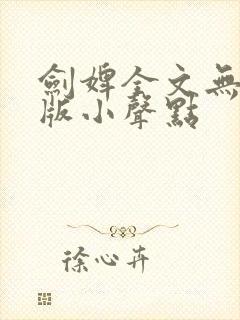 劍婢全文無
版小聲點
徐心卉